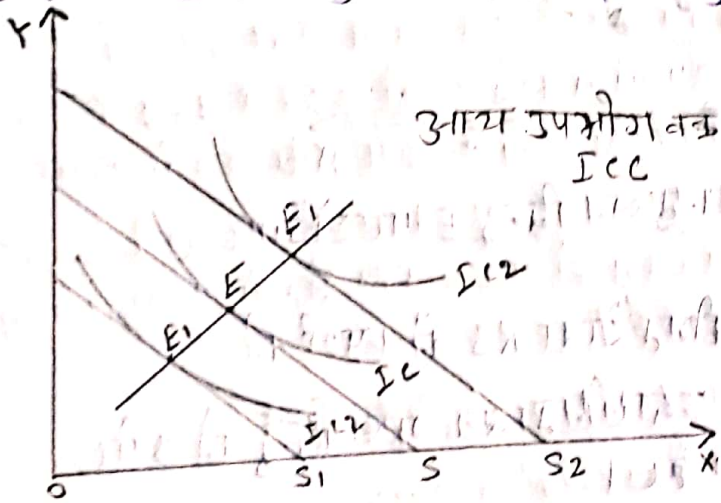 Y
आय उपभोग वक्र
ICC
E1
IC2
E
E1
IC
IC2
O
S1
S
S2
X